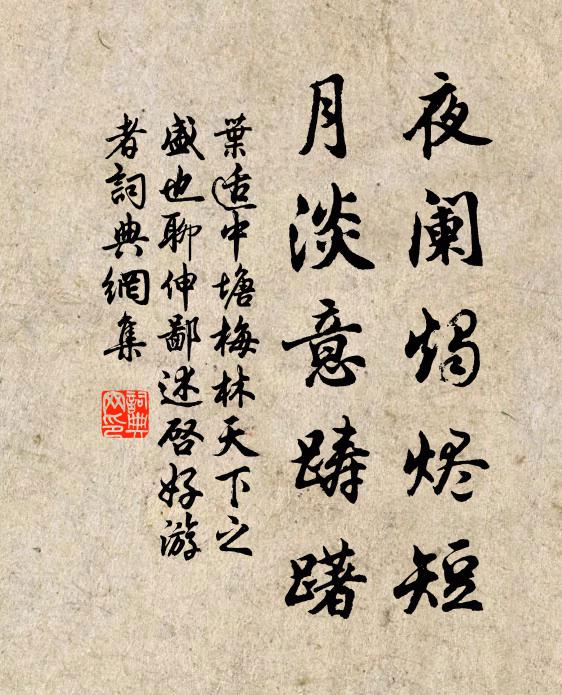 夜阑燭烬短
月淡意踌躇
葉适中塘梅林天下之
盛也聊伸鄙述啓好游
者詞典網集
詞典
网印